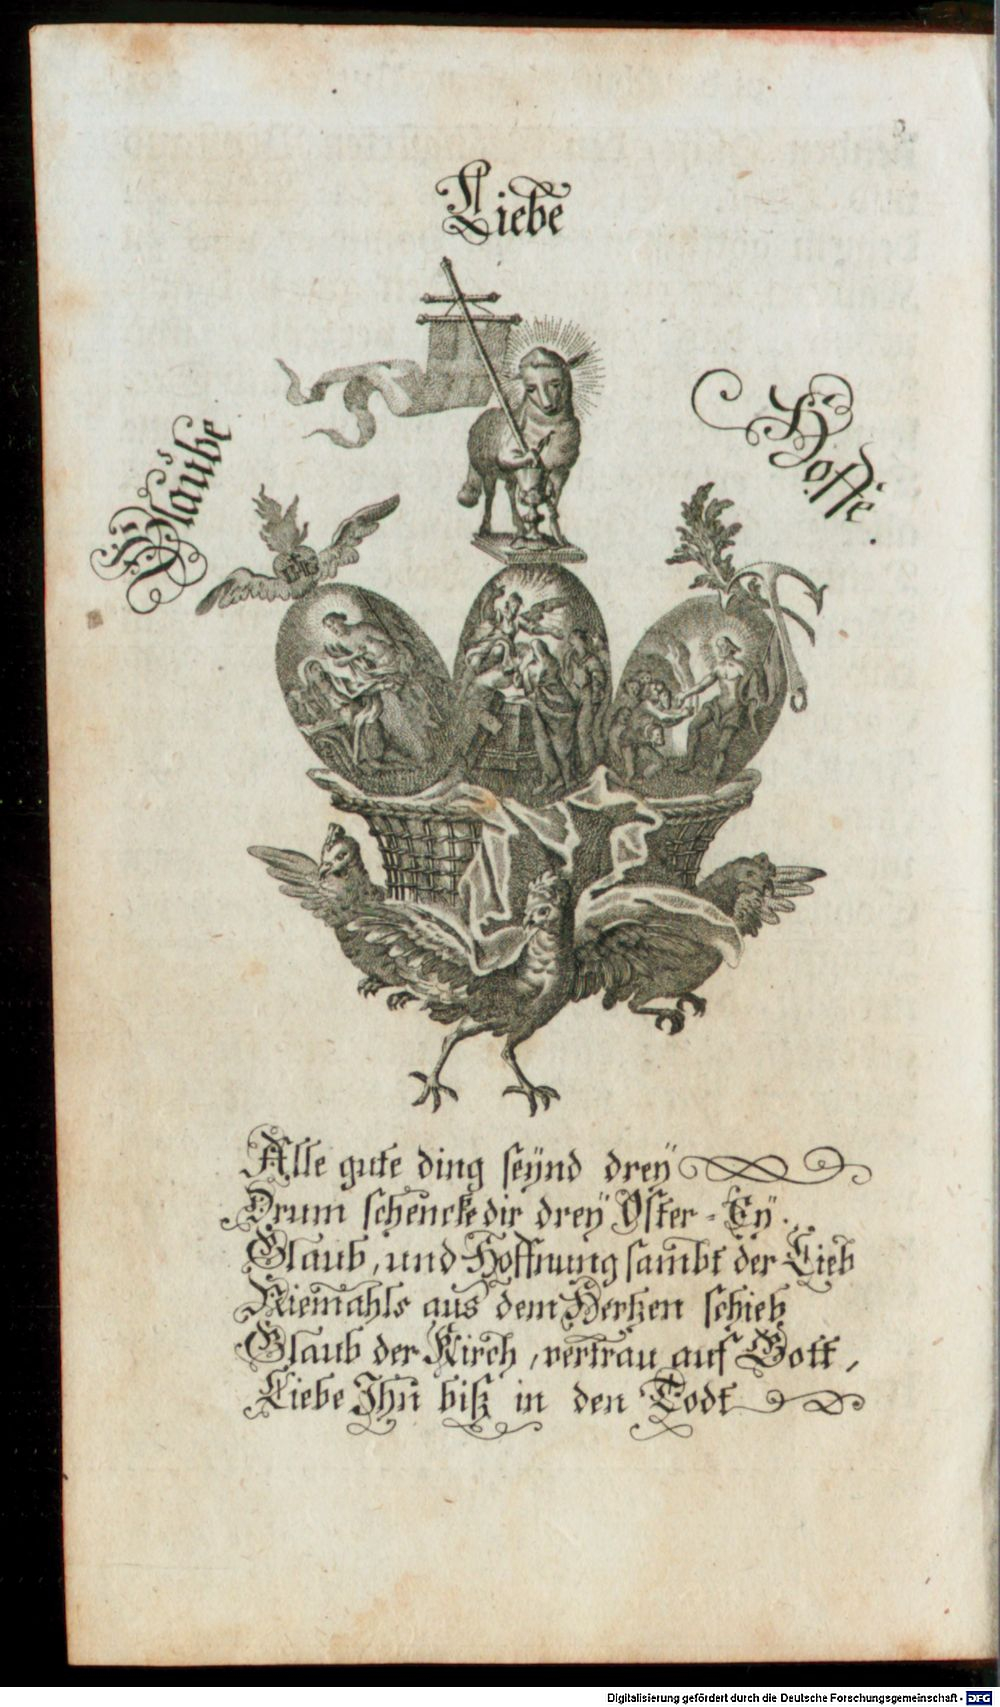 Liebe
Glaube
Hoffe.
IHS
Alle gute ding seÿnd dreÿ
Drum schencke dir dreÿ Oster-Eÿ.
Glaub, und Hoffnung sambt der Lieb
Niemahls aus dem Hertzen schieb
Glaub der Kirch, vertrau auf Gott,
Liebe Ihn biß in den Todt
Digitalisierung gefördert durch die Deutsche Forschungsgemeinschaft - DFG